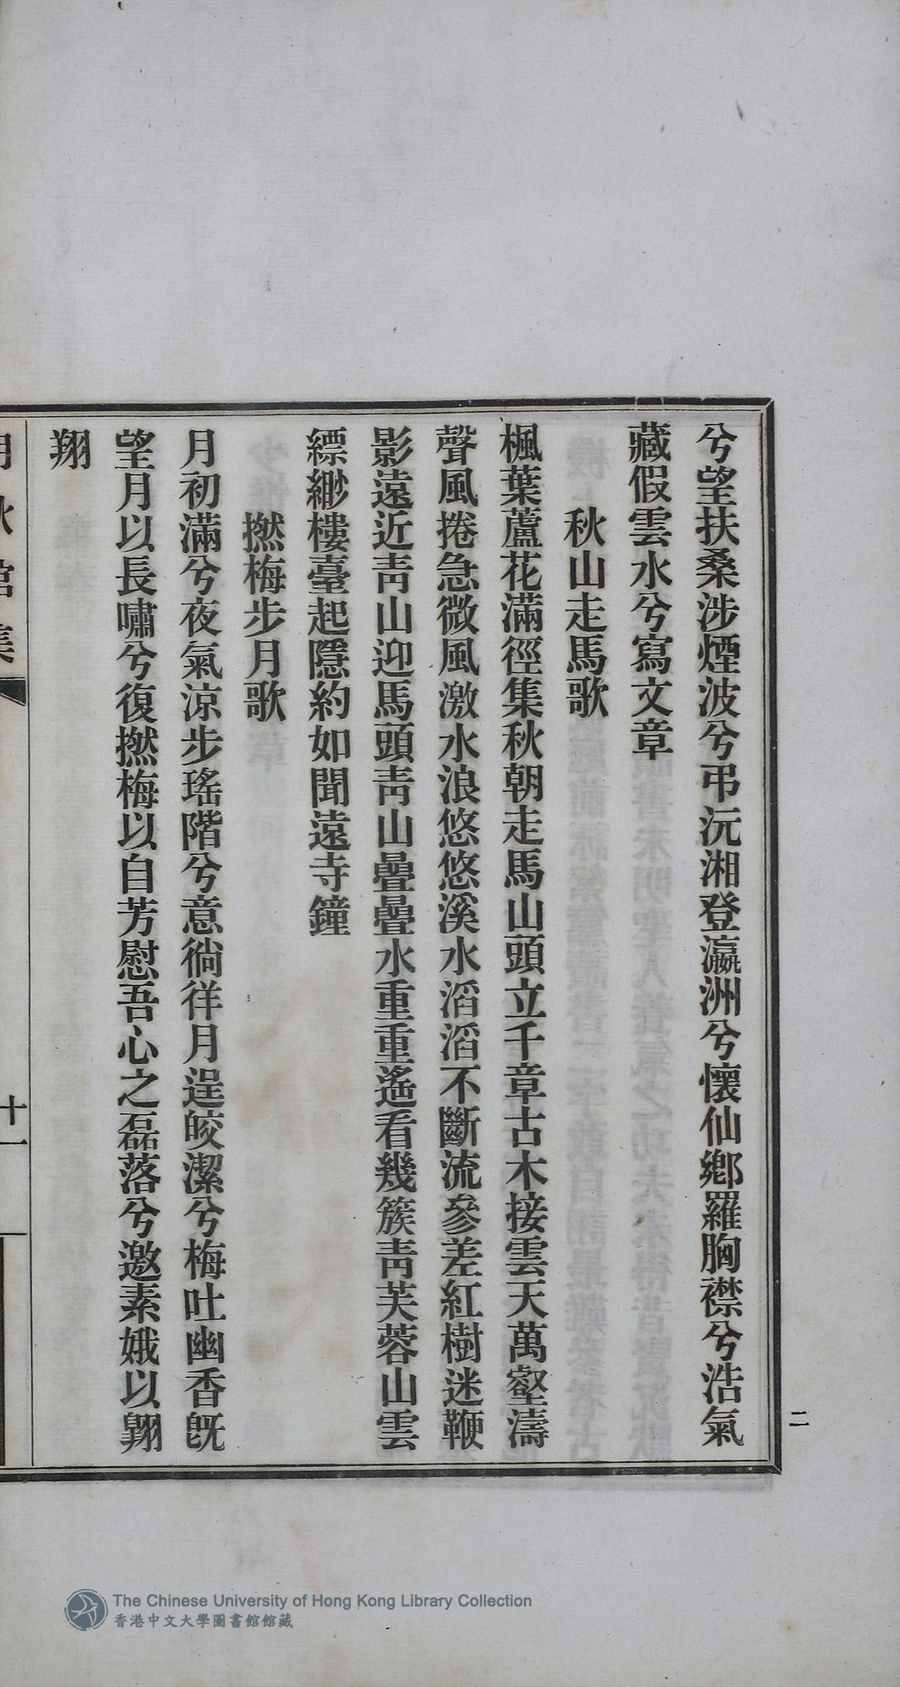 兮望扶桑涉煙波兮弔沅湘登瀛洲兮懷仙鄉羅胸襟兮浩氣
藏假雲水兮寫文章
秋山走馬歌
楓葉蘆花滿徑集秋朝走馬山頭立千章古木接雲天萬壑濤
聲風捲急微風激水浪悠悠溪水滔滔不斷流參差紅樹迷鞭
影遠近靑山迎馬頭靑山疊疊水重重遙看幾簇靑芙蓉山雲
縹緲樓臺起隱約如聞遠寺鐘
撚梅步月歌
月初滿兮夜氣涼步瑤階兮意徜徉月逞皎潔兮梅吐幽香旣
望月以長嘯兮復撚梅以自芳慰吾心之磊落兮邀素娥以翺
翔
秋館集
十一
二
The Chinese University of Hong Kong Library Collection
香港中文大學圖書館館藏